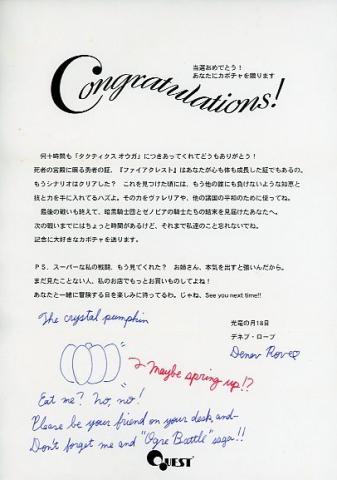 当選おめでとう！
あなたにカボチャを贈ります
Congratulations!
何十時間も「タクティクス オウガ」につきあってくれてどうもありがとう！
死者の宮殿に眠る勇者の証、『ファイアクレスト』はあなたが心も体も成長した証でもあるの。
もうシナリオはクリアした？ これを見つけた頃には、もう他の誰にも負けないような知恵と
技と力を手に入れてるハズよ。その力をヴァレリアや、他の諸国の平和のために使ってね。
最後の戦いも終えて、暗黒騎士団とゼノビアの騎士たちの結末を見届けたあなたへ。
次の戦いまでにはちょっと時間があるけど、それまで私達のこと忘れないでね。
記念に大好きなカボチャを送ります。
P.S. スーパーな私の戦闘、もう見てくれた？ お姉さん、本気を出すと強いんだから。
まだ見たことない人、私のお店でもっとお買いものしてよね！
あなたと一緒に冒険する日を楽しみに待ってるわ。じゃね、See you next time!!
The crystal pumpkin
光竜の月18日
デネブ・ローブ
Denev Rove
Maybe spring up!?
Eat me? No, no!
Please be your friend on your desk, and
Don't forget me and "Ogre Battle" saga!!
QUEST